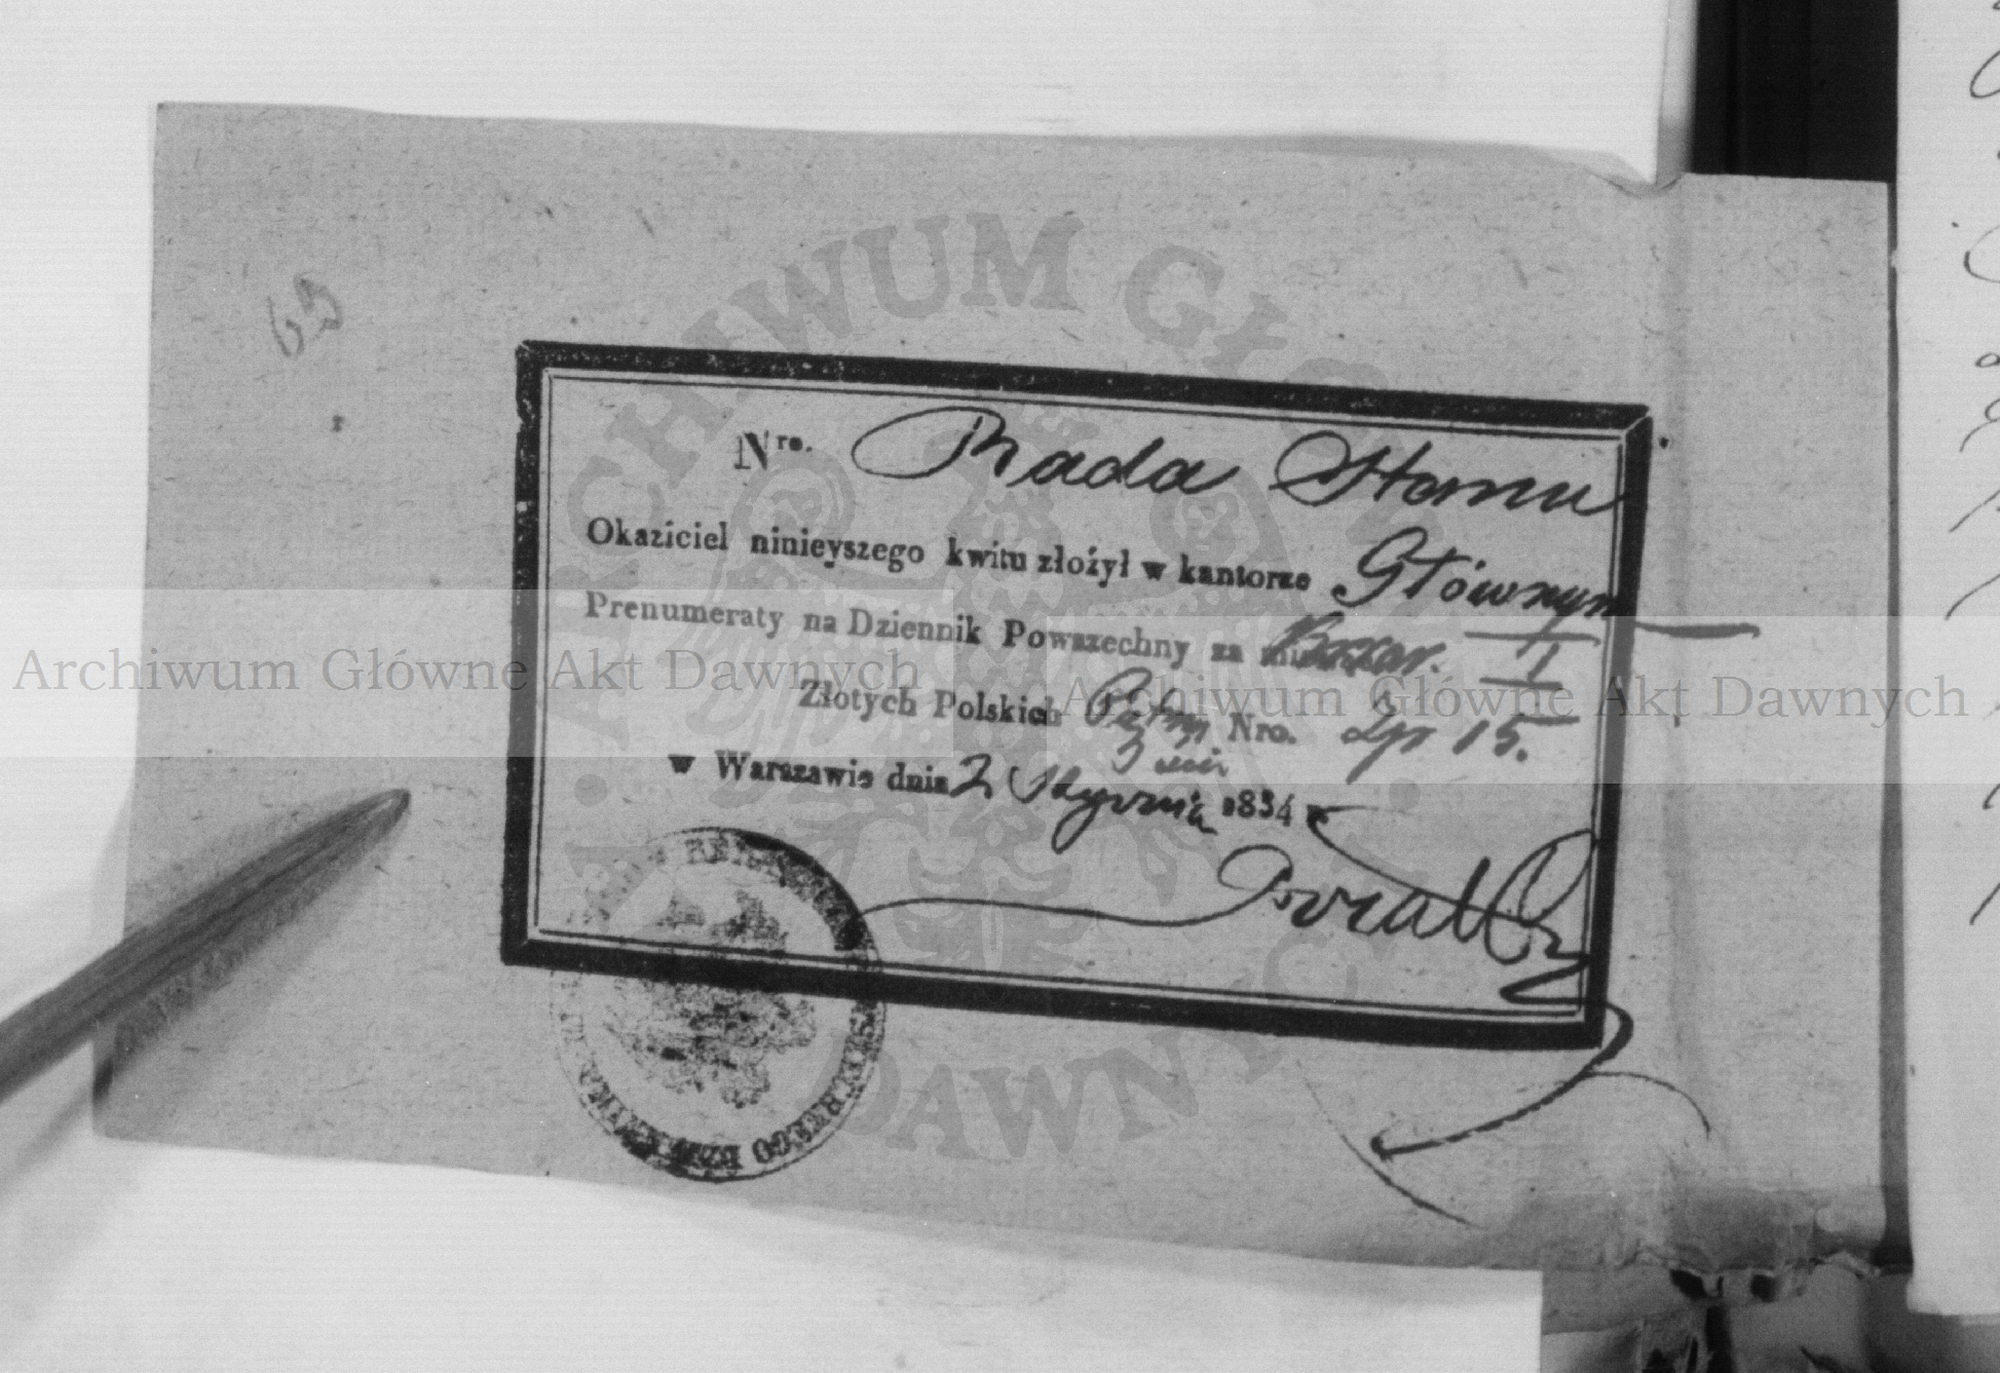 69
Nro. Rada Stanu
Okaziciel ninieyszego kwitu złożył w kantorze Głównym
Prenumeraty na Dziennik Powszechny za Kwar. I
Złotych Polskich Nro. Zp 15.
w Warszawie dnia 2 Stycznia 1834 r.
ARCHIWUM GŁÓWNE AKT DAWNYCH
Archiwum Główne Akt Dawnych
Archiwum Główne Akt Dawnych